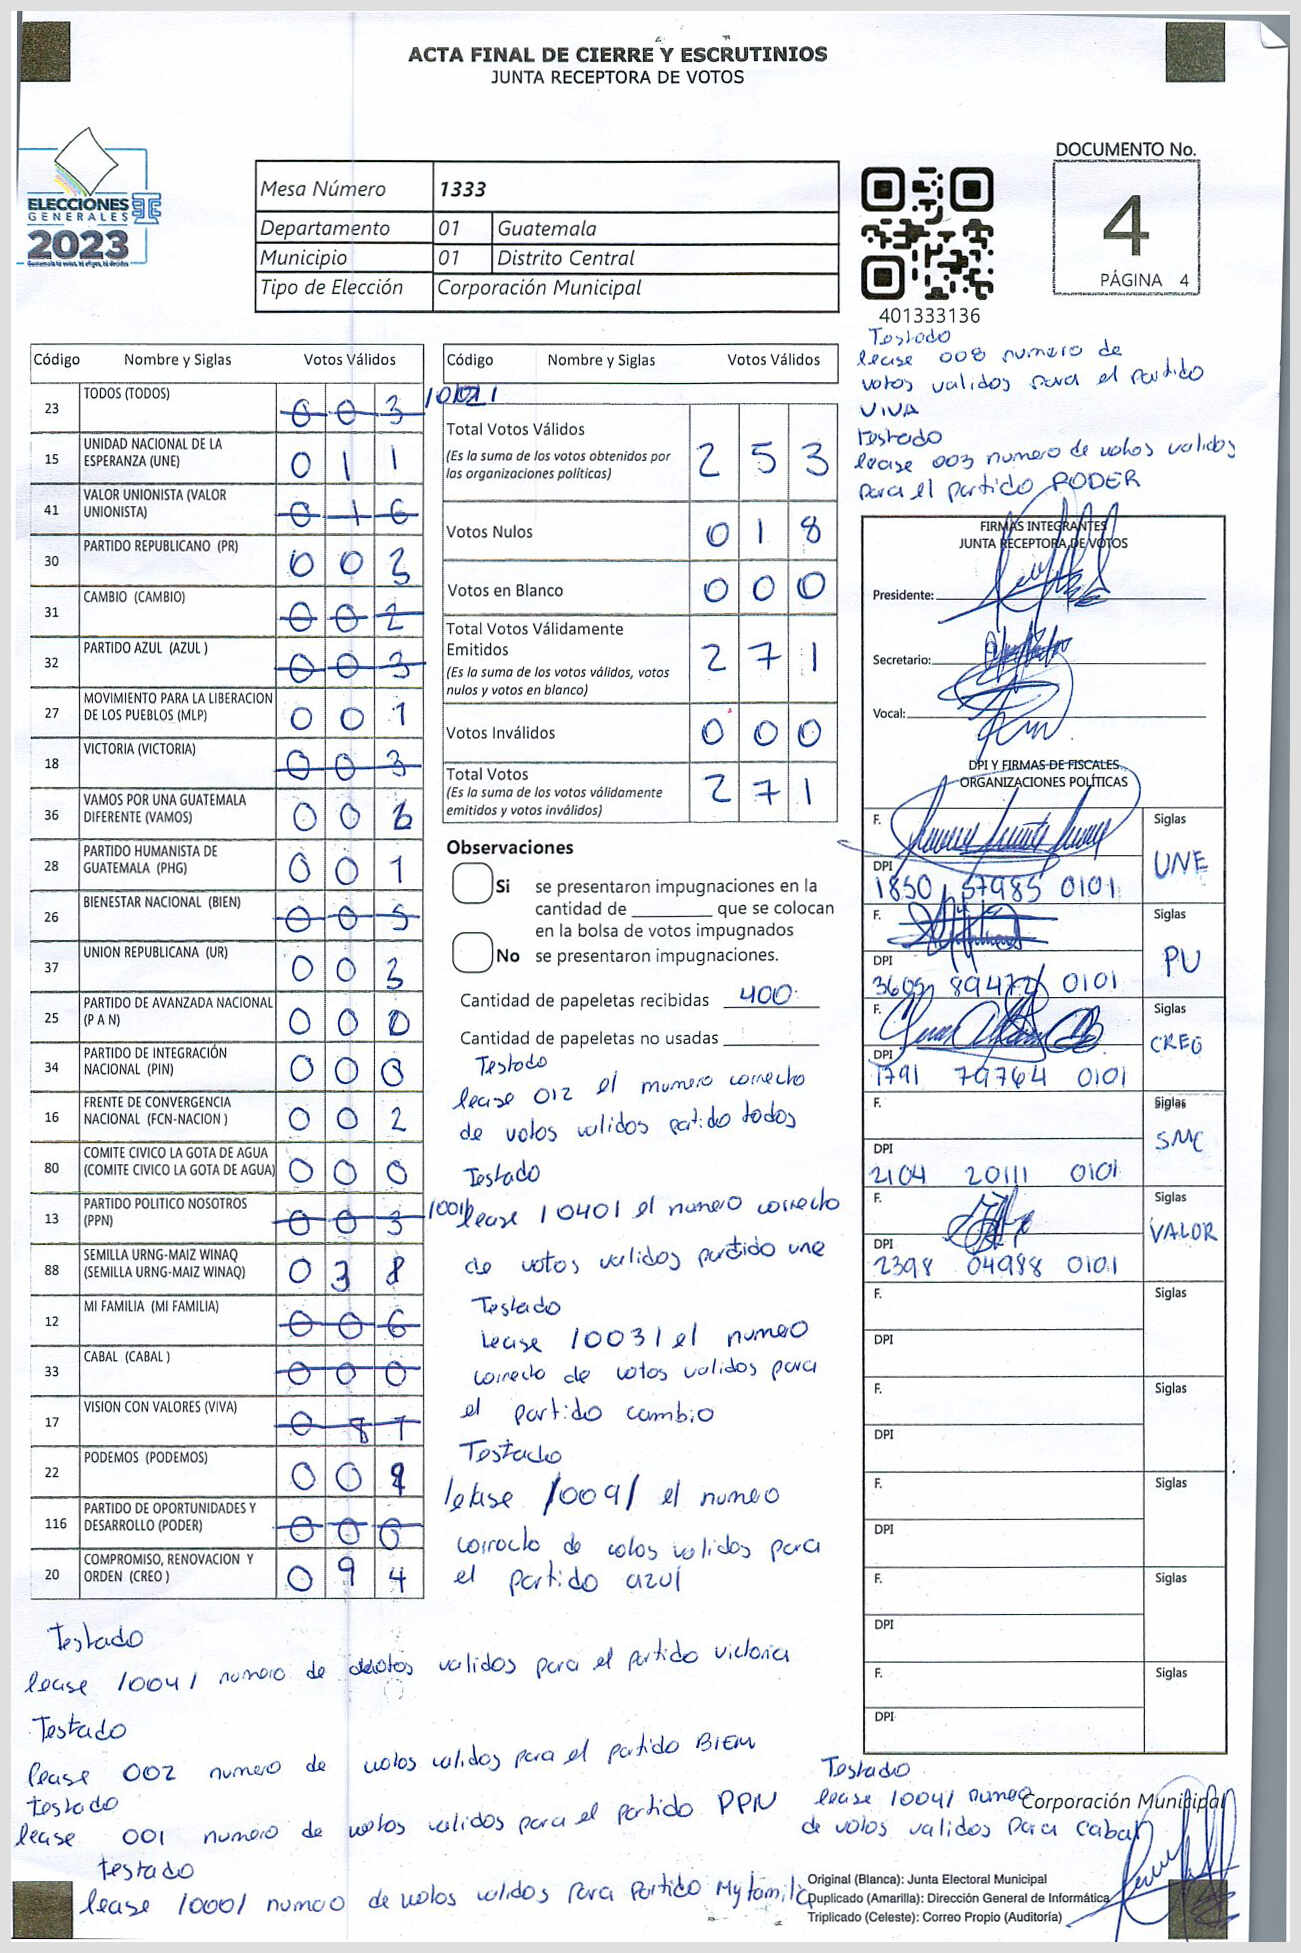 ACTA FINAL DE CIERRE Y ESCRUTINIOS
JUNTA RECEPTORA DE VOTOS
ELECCIONES
GENERALES
2023
Mesa Número 1333
Departamento 01 Guatemala
Municipio 01 Distrito Central
Tipo de Elección Corporación Municipal
401333136
DOCUMENTO No.
4
PÁGINA 4
Código Nombre y Siglas Votos Válidos
23 TODOS (TODOS) 003
15 UNIDAD NACIONAL DE LA ESPERANZA (UNE) 011
41 VALOR UNIONISTA (VALOR UNIONISTA) 016
30 PARTIDO REPUBLICANO (PR) 00
31 CAMBIO (CAMBIO) 002
32 PARTIDO AZUL (AZUL ) 003
27 MOVIMIENTO PARA LA LIBERACION DE LOS PUEBLOS (MLP) 001
18 VICTORIA (VICTORIA) 003
36 VAMOS POR UNA GUATEMALA DIFERENTE (VAMOS) 00
28 PARTIDO HUMANISTA DE GUATEMALA (PHG) 001
26 BIENESTAR NACIONAL (BIEN) 005
37 UNION REPUBLICANA (UR) 003
25 PARTIDO DE AVANZADA NACIONAL (P A N) 000
34 PARTIDO DE INTEGRACIÓN NACIONAL (PIN) 000
16 FRENTE DE CONVERGENCIA NACIONAL (FCN-NACION ) 002
80 COMITE CIVICO LA GOTA DE AGUA (COMITE CIVICO LA GOTA DE AGUA) 000
13 PARTIDO POLITICO NOSOTROS (PPN) 003
88 SEMILLA URNG-MAIZ WINAQ (SEMILLA URNG-MAIZ WINAQ) 038
12 MI FAMILIA (MI FAMILIA) 006
33 CABAL (CABAL ) 000
17 VISION CON VALORES (VIVA) 087
22 PODEMOS (PODEMOS) 00
116 PARTIDO DE OPORTUNIDADES Y DESARROLLO (PODER) 000
20 COMPROMISO, RENOVACION Y ORDEN (CREO ) 094
Código Nombre y Siglas Votos Válidos
Total Votos Válidos 253
(Es la suma de los votos obtenidos por
las organizaciones políticas)
Votos Nulos 018
Votos en Blanco 000
Total Votos Válidamente
Emitidos 271
(Es la suma de los votos válidos, votos
nulos y votos en blanco)
Votos Inválidos 000
Total Votos 271
(Es la suma de los votos válidamente
emitidos y votos inválidos)
Observaciones
Si se presentaron impugnaciones en la
cantidad de ________ que se colocan
en la bolsa de votos impugnados
No se presentaron impugnaciones.
Cantidad de papeletas recibidas 400
Cantidad de papeletas no usadas
Testado
lease 012 el numero correcto
de votos validos patido todos
Testado
lease 10401 el numero correcto
de votos validos partido une
Testado
lease 10031 el numeo
correcto de votos validos para
el partido cambio
Testado
lease /009/ el numeo
correcto de votos validos para
el partido azul
Testado
lease 008 numero de
votos validos para el partido
VIVA
testado
lease 003 numero de votos validos
para el partido PODER
FIRMAS INTEGRANTES
JUNTA RECEPTORA DE VOTOS
Presidente:
Secretario:
Vocal:
DPI Y FIRMAS DE FISCALES
ORGANIZACIONES POLÍTICAS
F. Siglas
UNE
DPI
1850 57985 0101
F. Siglas
PU
DPI
0101
F. Siglas
CREO
DPI
1791 79764 0101
F. Siglas
SMC
DPI
2104 20111 0101
F. Siglas
VALOR
DPI
2398 04988 0101
F. Siglas
DPI
F. Siglas
DPI
F. Siglas
DPI
F. Siglas
DPI
F. Siglas
DPI
Testado
lease 10041 numero de votos validos para el partido victoria
Testado
lease 002 numero de votos validos para el partido BIEN
testado
lease 001 numero de votos validos para el partido PPN
testado
lease 10001 numero de votos validos para partido My familia
Testado
lease 10041 numeo
de votos validos para cabal
Corporación Municipal
Original (Blanca): Junta Electoral Municipal
Duplicado (Amarilla): Dirección General de Informática
Triplicado (Celeste): Correo Propio (Auditoría)